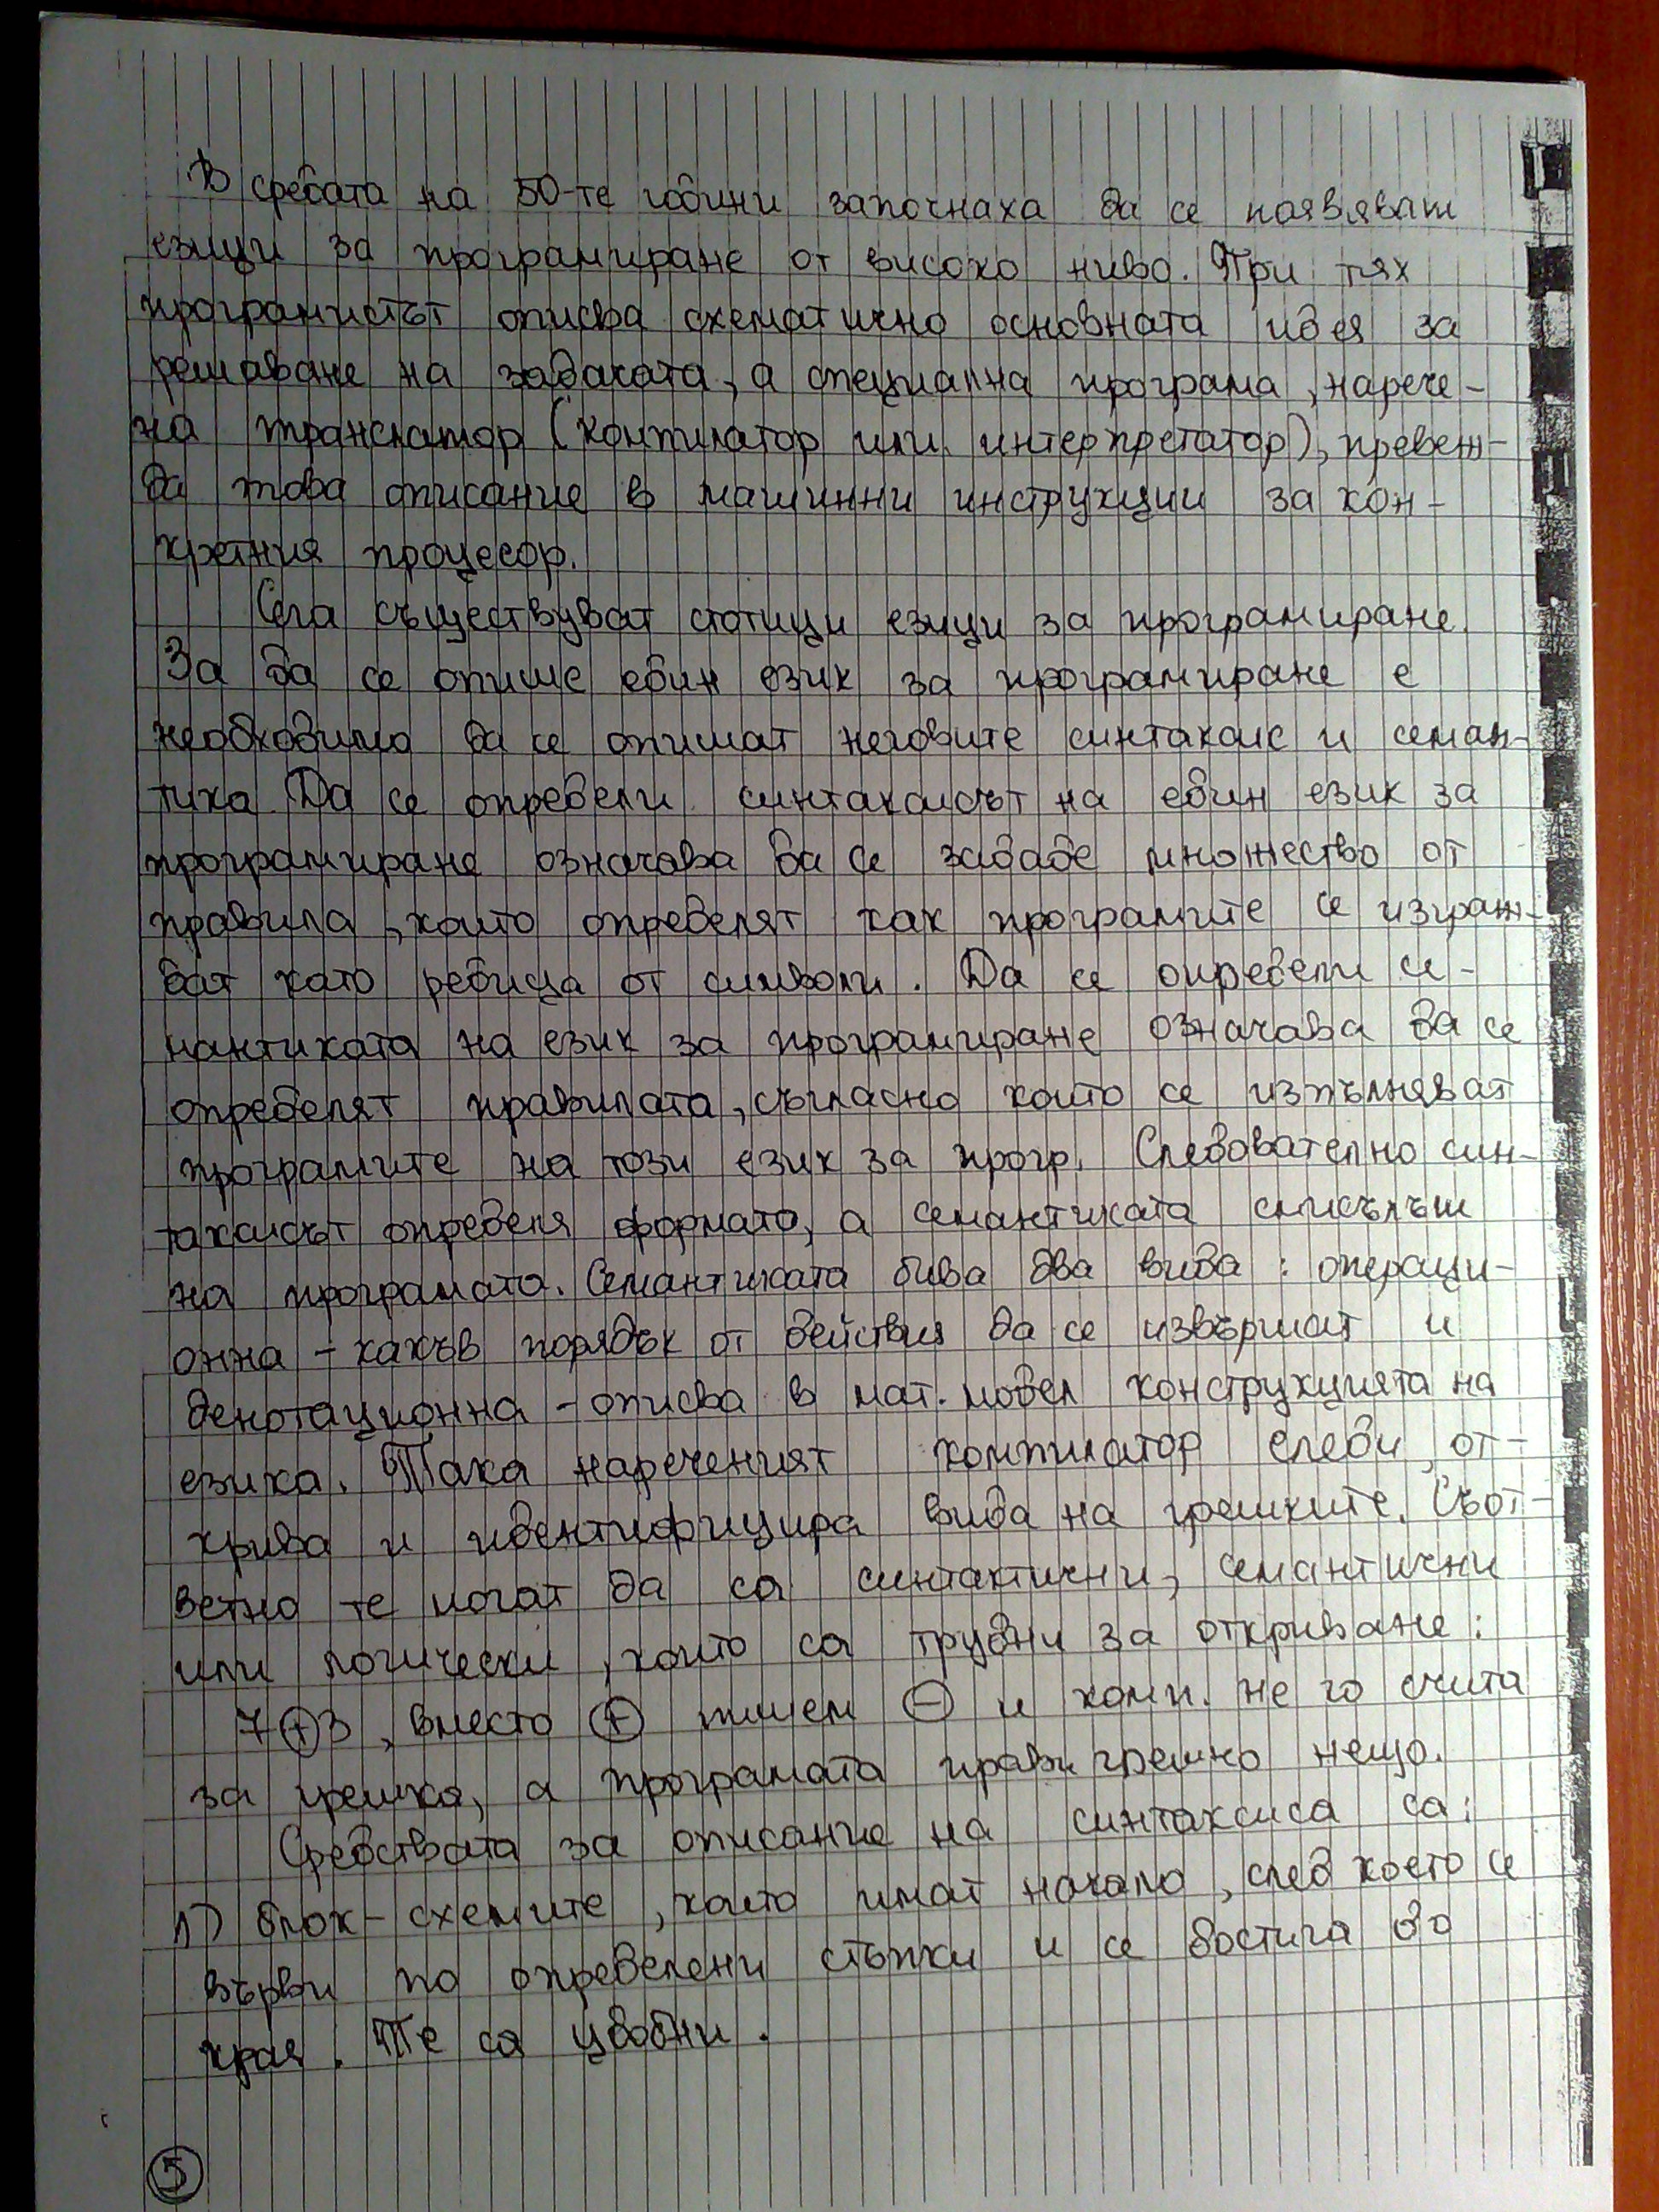 В средата на 50-те години започнаха да се появяват
езици за програмиране от високо ниво. При тях
програмистът описва схематично основната идея за
решаване на задачата, а специална програма, нарече-
на транслатор (компилатор или интерпретатор), превеж-
да това описание в машинни инструкции за кон-
кретния процесор.
Сега съществуват стотици езици за програмиране.
За да се опише един език за програмиране е
необходимо да се опишат неговите синтаксис и семан-
тика. Да се определи синтаксисът на един език за
програмиране означава да се зададе множество от
правила, които определят как програмите се изграж-
дат като редица от символи. Да се определи се-
мантиката на език за програмиране означава да се
определят правилата, съгласно които се изпълняват
програмите на този език за прогр. Следователно син-
таксисът определя формата, а семантиката смисълът
на програмата. Семантиката бива два вида: операци-
онна - какъв порядък от действия да се извършат и
денотационна - описва в мат. модел конструкцията на
езика. Така нареченият компилатор следи, от-
крива и идентифицира вида на грешките. Съот-
ветно те могат да са синтактични, семантични
или логически, които са трудни за откриване:
7⊕3, вместо ⊕ пишем ⊖ и комп. не го счита
за грешка, а програмата прави грешно нещо.
Средствата за описание на синтаксиса са:
1) блок-схемите, които имат начало, след което се
върви по определени стъпки и се достига до
края. Те са удобни.
5